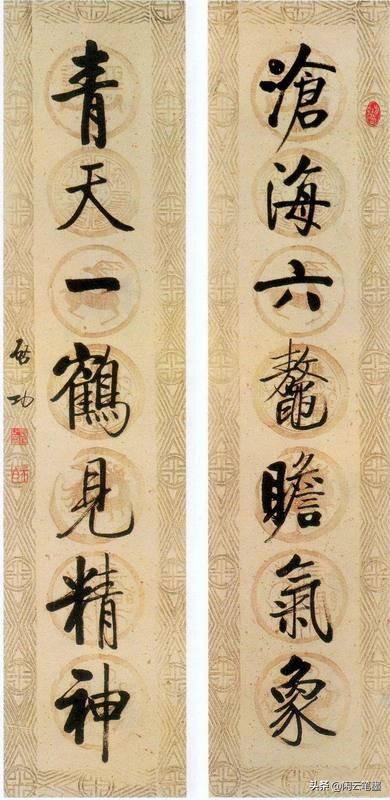 滄海六鼇瞻氣象
青天一鶴見精神
啓功
头条 @闲云笔墨